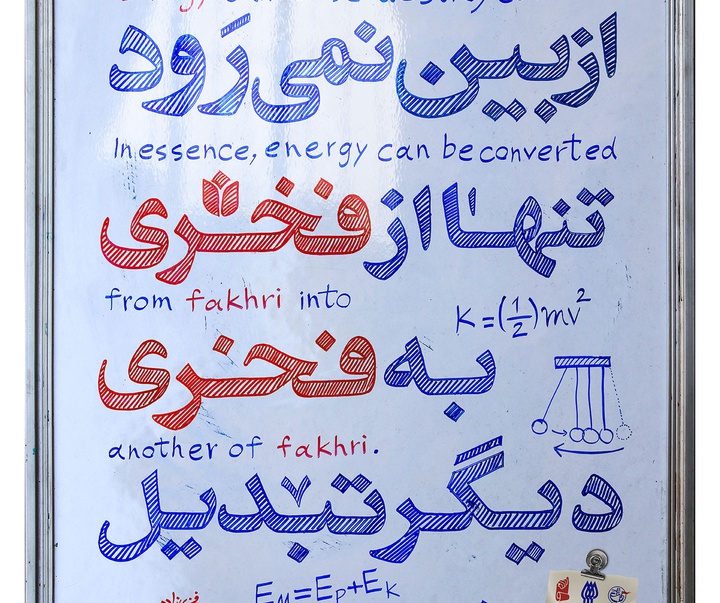 از بین نمی‌رَود
In essence, energy can be converted
تنها از فخری
from fakhri into
K=(1/2)mv²
به فخری
another of fakhri.
دیگر تبدیل
E_M=E_P+E_K